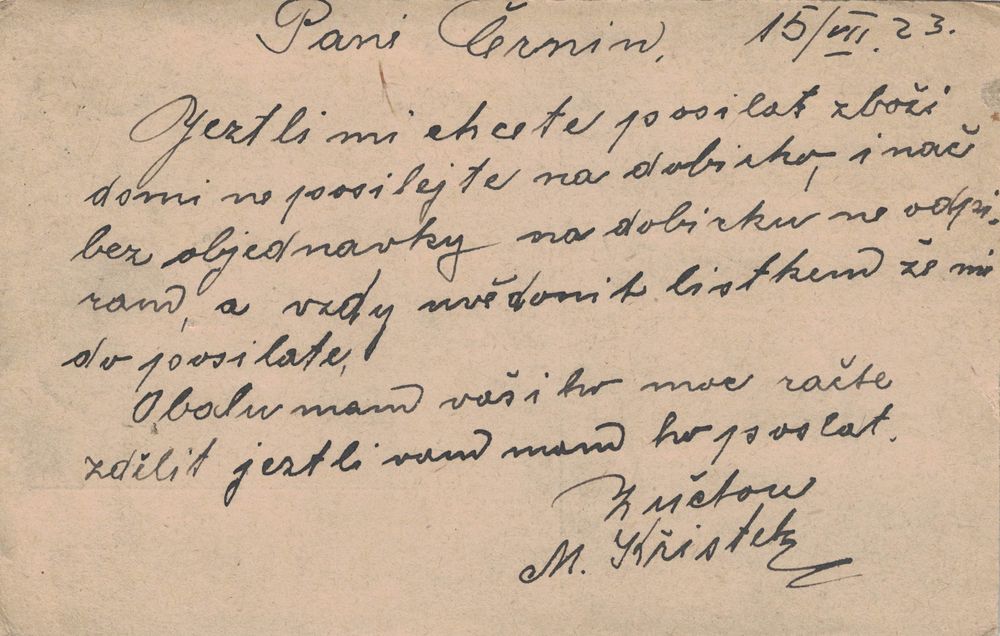 Pani Černin, 15/VII. 23.
Jeztli mi chcete posilat zboži
domi neposilejte na dobirko, inač
bez objednavky na dobirku ne odpi,
ram, a vzdy uvědomit listkem že mi
do posilate,
Obalu mam vašiho moc račte
zdělit jeztli vam mam ho poslat.
Z učtou
M. Křistek